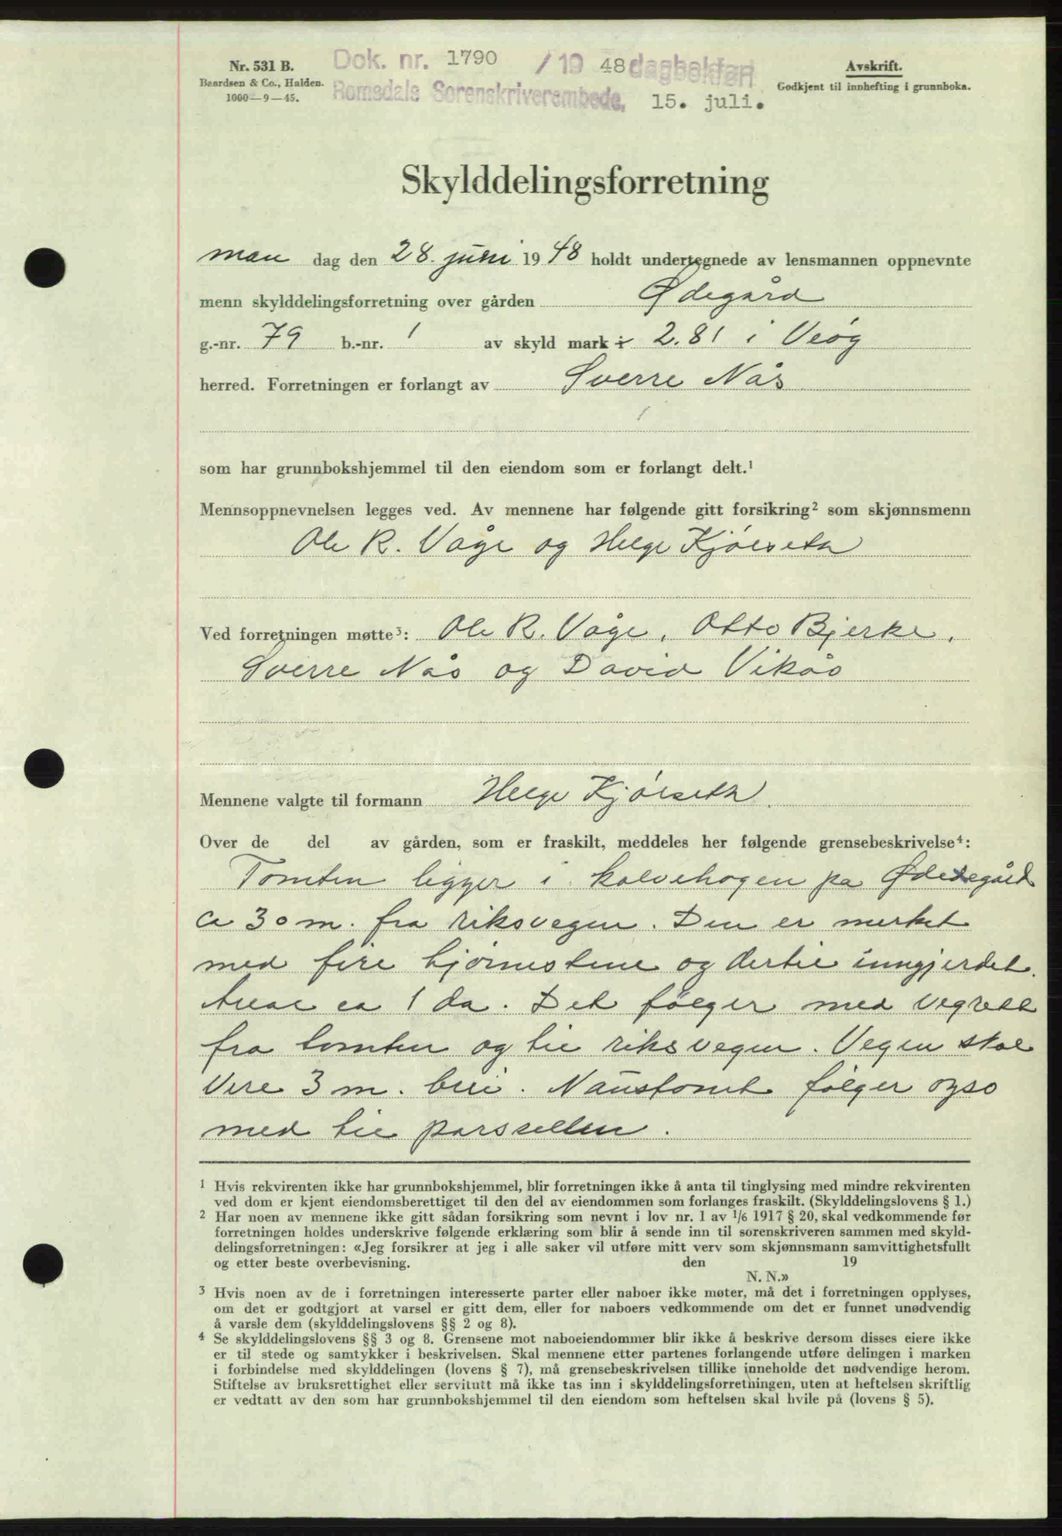 Nr. 531 B.
Baardsen & Co., Halden.
1000—9—45.
Dok. nr. 1790 / 19 48 dagbokført
Romsdals Sorenskriverembede, 15. juli.
Avskrift.
Godkjent til innhefting i grunnboka.
Skylddelingsforretning
man dag den 28. juni 1948 holdt undertegnede av lensmannen oppnevnte
menn skylddelingsforretning over gården Ødegård
g.-nr. 79 b.-nr. 1 av skyld mark 2.81 i Veøy
herred. Forretningen er forlangt av Sverre Nås
som har grunnbokshjemmel til den eiendom som er forlangt delt.¹
Mennsoppnevnelsen legges ved. Av mennene har følgende gitt forsikring² som skjønnsmenn
Ole R. Våge og Helge Kjørseth
Ved forretningen møtte³: Ole R. Våge, Otto Bjerke,
Sverre Nås og David Vikås
Mennene valgte til formann Helge Kjørseth.
Over de del av gården, som er fraskilt, meddeles her følgende grensebeskrivelse⁴:
Tomten ligger i kalvehagen på Ødegård
ca 30 m. fra riksvegen. Den er merket
med fire hjørnestene og dertil inngjerdet.
Areal ca 1 da. Det følger med vegrett
fra tomten og til riksvegen. Vegen skal
vere 3 m. brei. Naustomt følger også
med til parsellen.
¹ Hvis rekvirenten ikke har grunnbokshjemmel, blir forretningen ikke å anta til tinglysing med mindre rekvirenten
ved dom er kjent eiendomsberettiget til den del av eiendommen som forlanges fraskilt. (Skylddelingslovens § 1.)
² Har noen av mennene ikke gitt sådan forsikring som nevnt i lov nr. 1 av 1/6 1917 § 20, skal vedkommende før
forretningen holdes underskrive følgende erklæring som blir å sende inn til sorenskriveren sammen med skyld-
delingsforretningen: «Jeg forsikrer at jeg i alle saker vil utføre mitt verv som skjønnsmann samvittighetsfullt
og etter beste overbevisning. den 19
N. N.»
³ Hvis noen av de i forretningen interesserte parter eller naboer ikke møter, må det i forretningen opplyses,
om det er godtgjort at varsel er gitt dem, eller for naboers vedkommende om det er funnet unødvendig
å varsle dem (skylddelingslovens §§ 2 og 8).
⁴ Se skylddelingslovens §§ 3 og 8. Grensene mot naboeiendommer blir ikke å beskrive dersom disses eiere ikke
er til stede og samtykker i beskrivelsen. Skal mennene etter partenes forlangende utføre delingen i marken
i forbindelse med skylddelingen (lovens § 7), må grensebeskrivelsen tillike inneholde det nødvendige herom.
Stiftelse av bruksrettighet eller servitutt må ikke tas inn i skylddelingsforretningen, uten at heftelsen skriftlig
er vedtatt av den som har grunnbokshjemmel til den eiendom som heftelsen skal hvile på (lovens § 5).